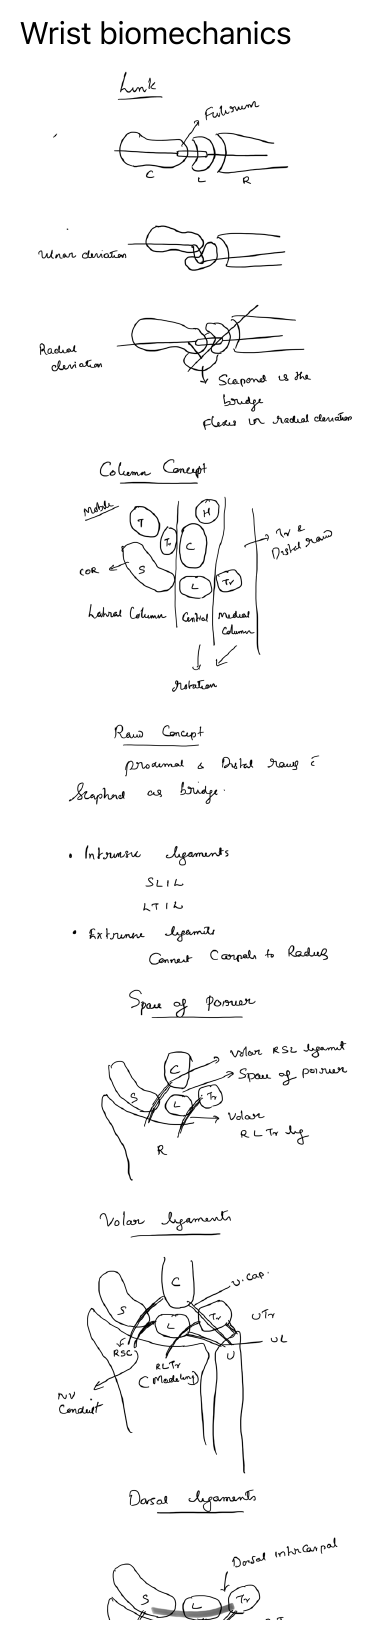 Wrist biomechanics
Link
Fulcrum
C L R
Ulnar deviation
Radial
deviation
Scapoid is the
bridge
Flexes in radial deviation
Column Concept
Mobile
T
H
Tr &
Distal row
C
COR
S
L
Tr
Lateral Column
Central
Medial
Column
rotation
Row Concept
proximal & Distal rows c̄
Scaphoid as bridge.
• Intrinsic ligaments
SLIL
LTIL
• Extrinsic ligamets
Connect Carpals to Radius
Space of poirier
C
Volar RSL ligamet
Space of poirier
S
L
Tr
Volar
RLTr lig
R
Volar ligaments
C
U. Cap.
S
Tr
UTr
L
UL
RSC
U
RLTr
(Modeling)
NV
Conduit
Dorsal ligaments
Dorsal intercarpal
S
L
Tr